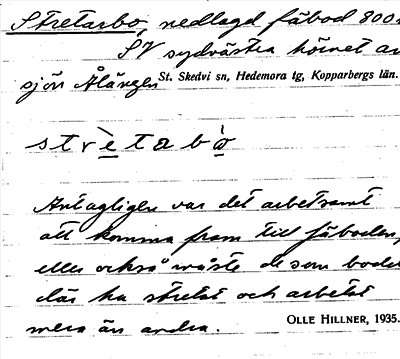 Stretarbo, nedlagd fäbod 800
SV sydvästra hörnet av
sjön Ålängen St. Skedvi sn, Hedemora tg, Kopparbergs län.
strètabò
Antagligen var det arbetsamt
att komma fram till fäboden,
eller också måste de som bodde
där ha stretat och arbetat
mera än andra.
OLLE HILLNER, 1935.